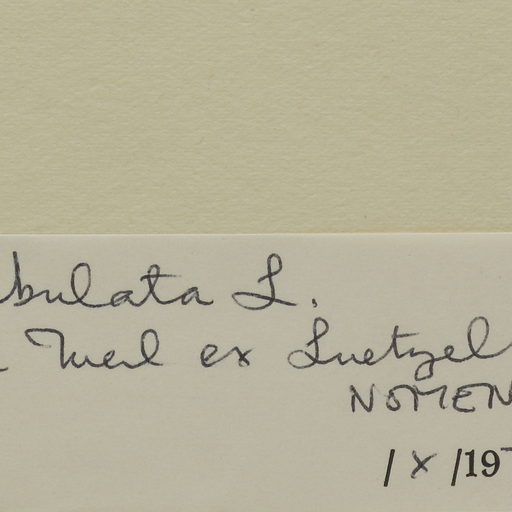 bulata L.
ex Luetzel
NOMEN
/ X /197